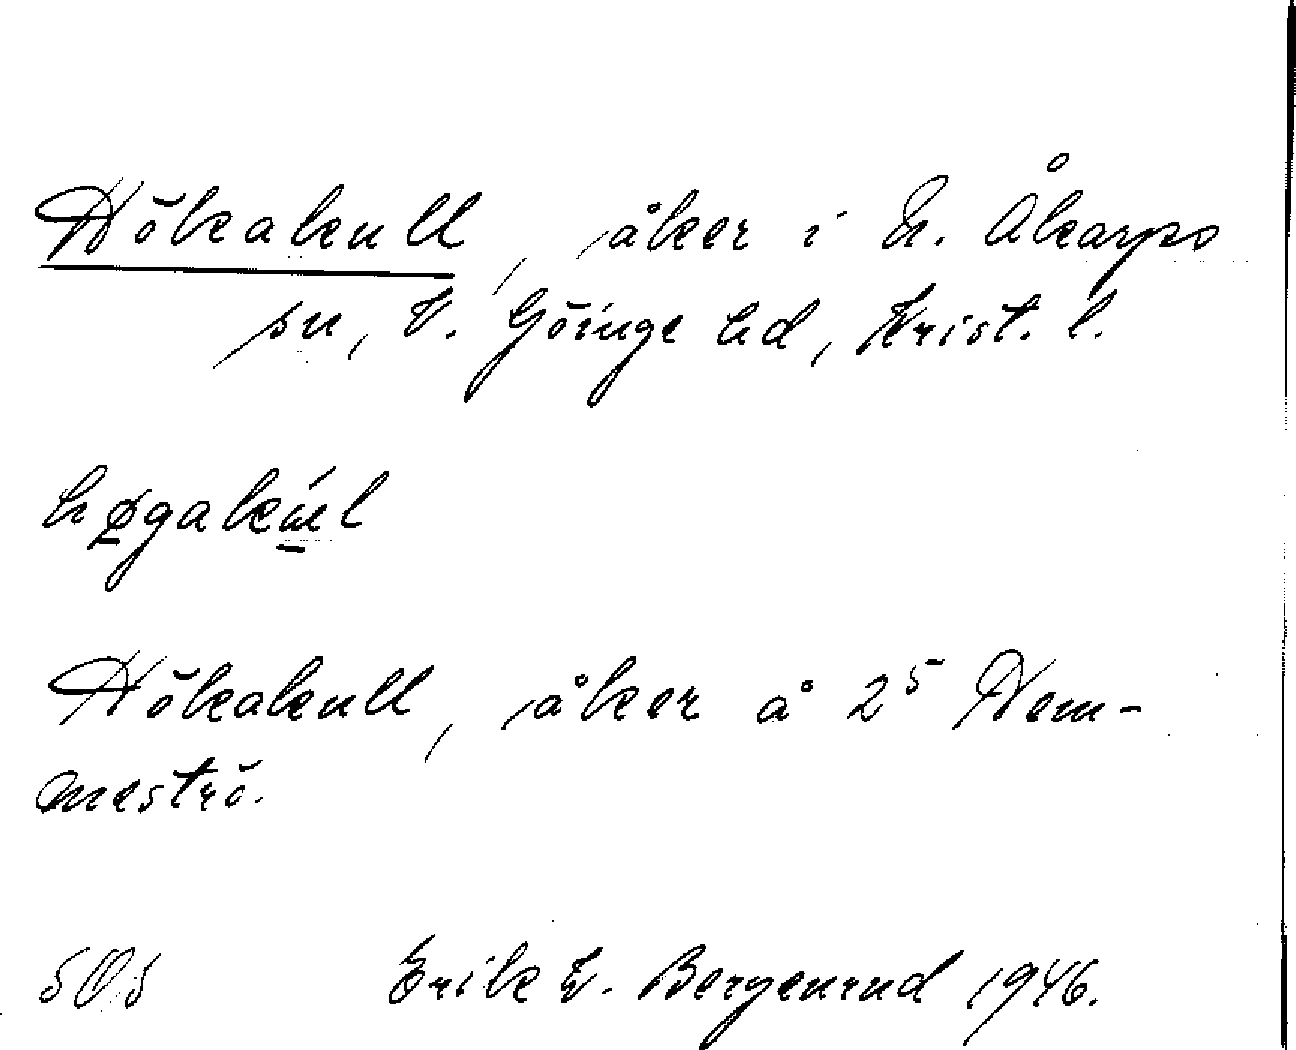 Hökakull, åker i N. Åkarps
sn, V. Göinge hd, Krist. l.
høgakúl
Hökakull, åker å 2⁵ Hem-
meströ.
505 Erik V. Bergenrud 1946.